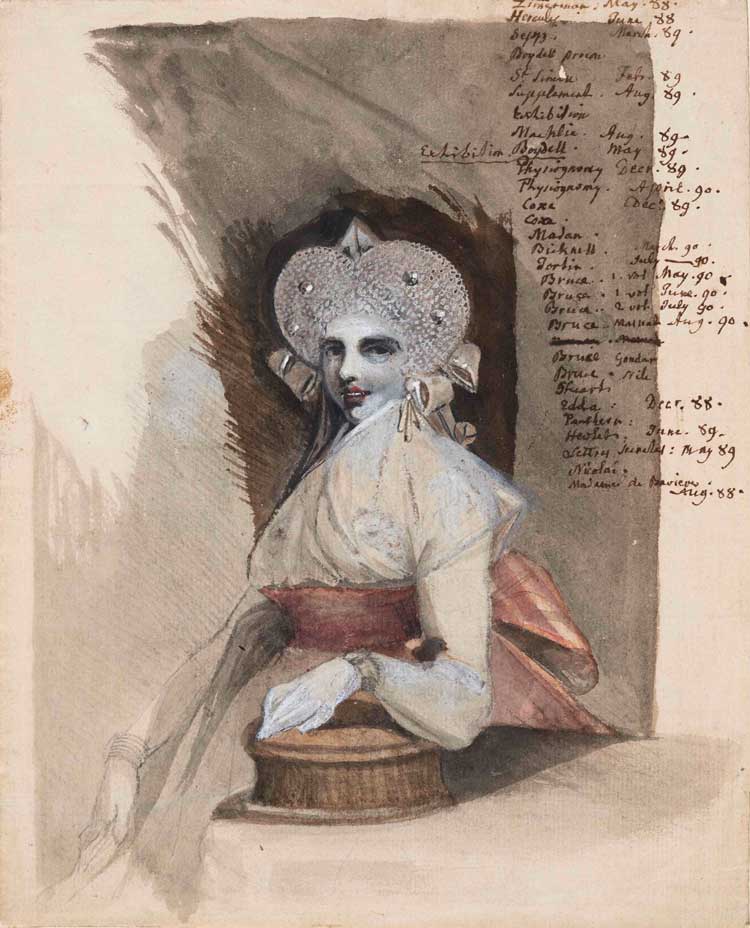 Zimmerman. May. 88
Hercules June. 88
March. 89.
Boydell
St Simon Febr. 89
Supplement. Aug. 89
Exhibition
Machlin. Aug. 89
Exhibition. Boydell. May 89.
Physiognomy Decr. 89.
Physiognomy. April. 90.
Coxe Decr. 89.
Coxe.
Madan.
Bicknell. March. 90
Jortin. July 90.
Bruce. 1. vol. May. 90
Bruce. 1 vol June. 90
Bruce. 2 vol July 90
Bruce Aug. 90
Bruce Gondar
Bruce. Nile
Stuarts
Edda: Decr. 88.
June. 89.
Lettres: May 89
Nicolai.
Madame de Baviere.
Aug. 88.